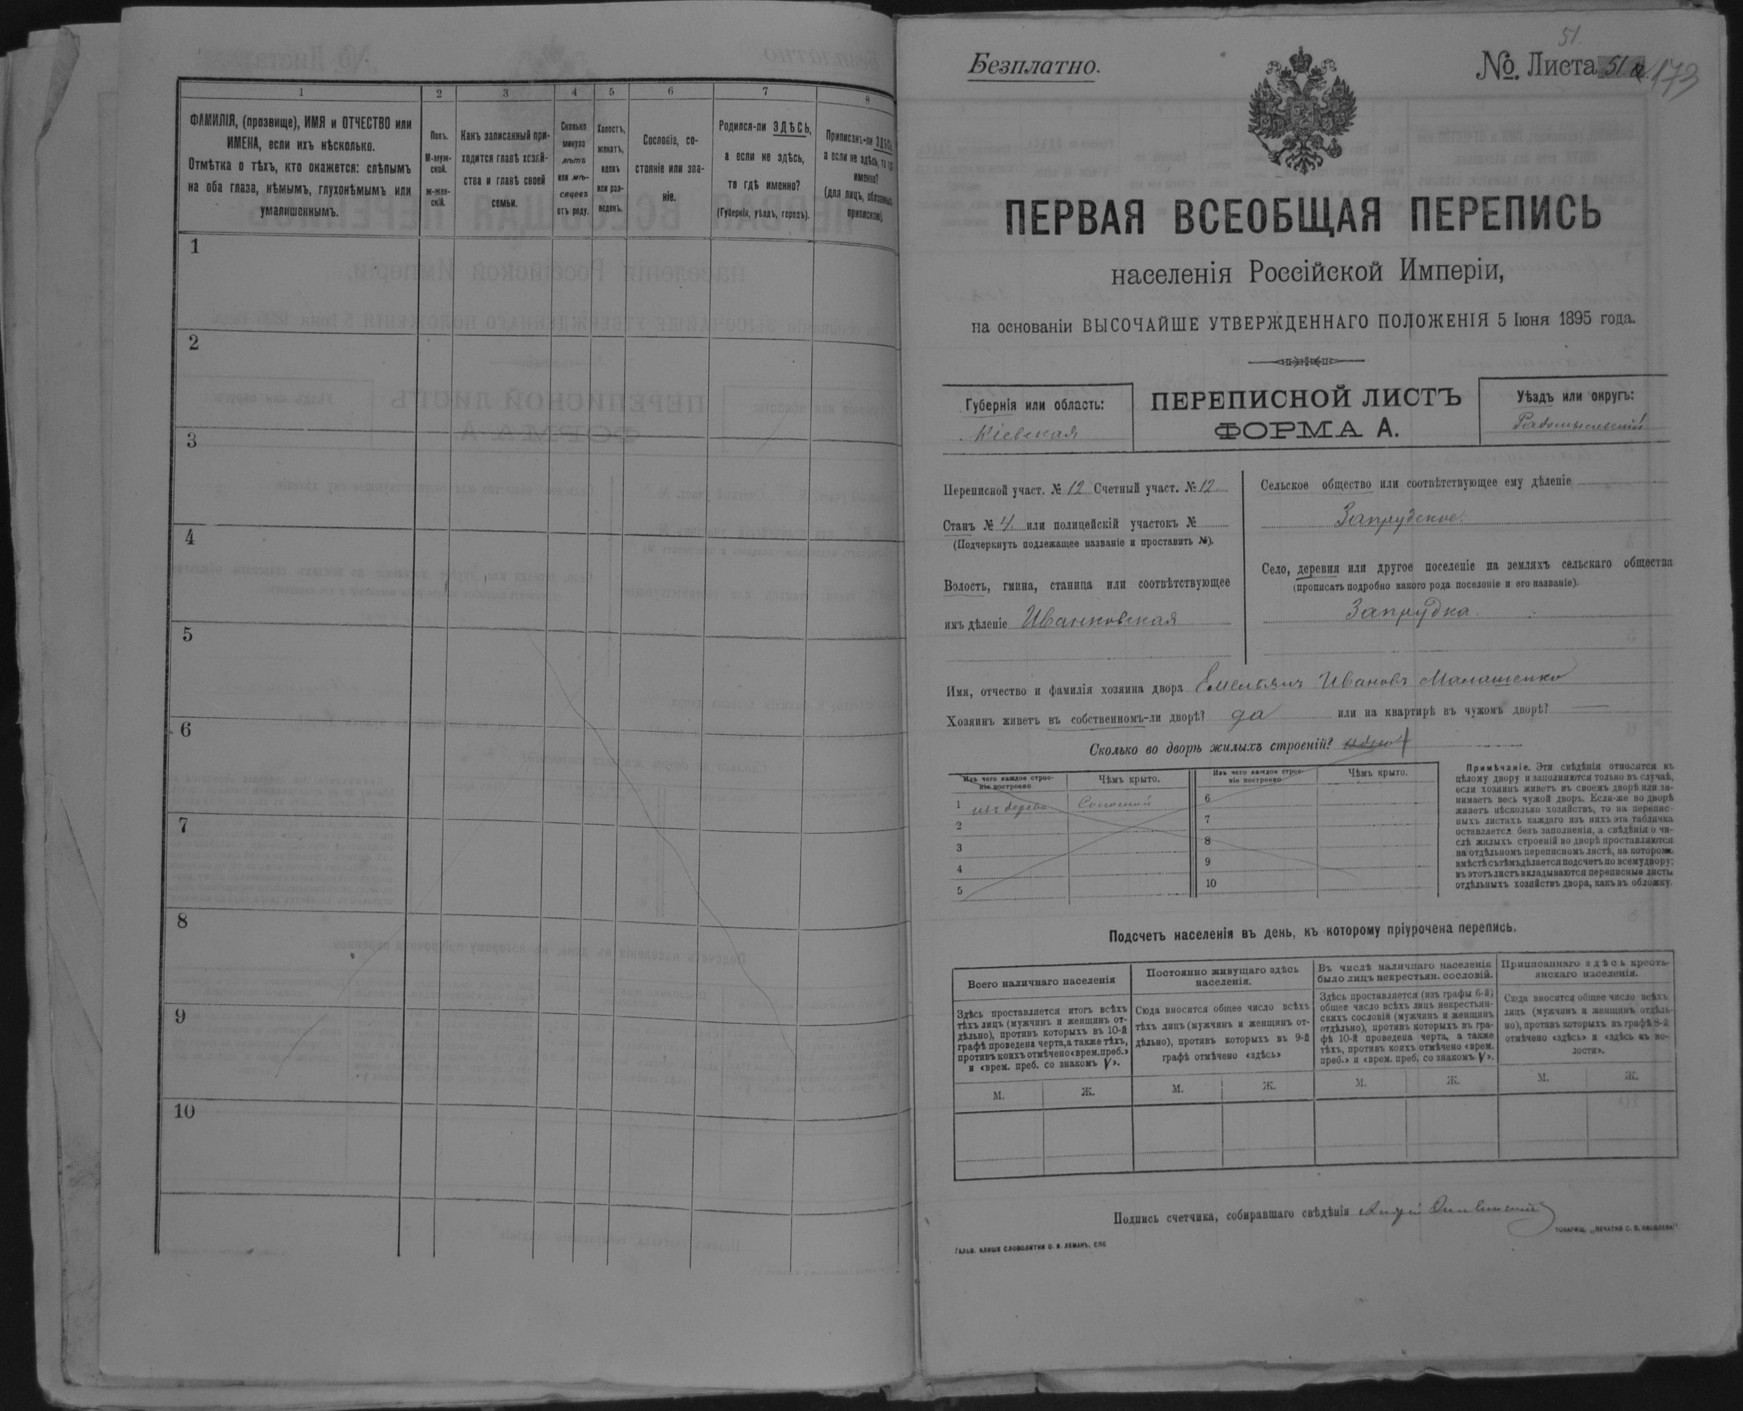 1 2 3 4 5 6 7 8
ФАМИЛІЯ, (прозвище), ИМЯ и ОТЧЕСТВО или
ИМЕНА, если ихъ нѣсколько.
Отмѣтка о тѣхъ, кто окажется: слѣпымъ
на оба глаза, нѣмымъ, глухонѣмымъ или
умалишеннымъ.
Полъ.
М-муж-
ской.
ж-жен-
скій.
Какъ записанный при-
ходится главѣ хозяй-
ства и главѣ своей
семьи.
Сколько
минуло
лѣтъ
или мѣ-
сяцевъ
отъ роду.
Холостъ,
женатъ,
вдовъ
или раз-
веденъ.
Сословіе, со-
стояніе или зва-
ніе.
Родился-ли ЗДѢСЬ,
а если не здѣсь,
то гдѣ именно?
(Губернія, уѣздъ, городъ).
Приписанъ-ли ЗДѢСЬ,
а если не здѣсь, то гдѣ
именно?
(для лицъ, обязанныхъ
припискою).
1
2
3
4
5
6
7
8
9
10
51.
Безплатно.
№ Листа 51 а 173
ПЕРВАЯ ВСЕОБЩАЯ ПЕРЕПИСЬ
населенія Россійской Имперіи,
на основаніи ВЫСОЧАЙШЕ УТВЕРЖДЕННАГО ПОЛОЖЕНІЯ 5 Іюня 1895 года.
Губернія или область:
Кіевская
ПЕРЕПИСНОЙ ЛИСТЪ
ФОРМА А.
Уѣздъ или округъ:
Радомысльскій
Переписной участ. № 12 Счетный участ. № 12
Станъ № 4. или полицейскій участокъ №
(Подчеркнуть подлежащее названіе и проставить №).
Волость, гмина, станица или соотвѣтствующее
имъ дѣленіе Иванковская
Сельское общество или соотвѣтствующее ему дѣленіе
Запрудское.
Село, деревня или другое поселеніе на земляхъ сельскаго общества
(прописать подробно какого рода поселеніе и его названіе).
Запрудка.
Имя, отчество и фамилія хозяина двора Емельянъ Ивановъ Малашенко
Хозяинъ живетъ въ собственномъ-ли дворѣ? да или на квартирѣ въ чужомъ дворѣ? —
Сколько во дворѣ жилыхъ строеній?
Изъ чего каждое строе-
ніе построено
Чѣмъ крыто.
Изъ чего каждое строе-
ніе построено
Чѣмъ крыто.
1 изъ дерева Соломой
2
3
4
5
6
7
8
9
10
Примѣчаніе. Эти свѣдѣнія относятся къ
цѣлому двору и заполняются только въ случаѣ,
если хозяинъ живетъ въ своемъ дворѣ или за-
нимаетъ весь чужой дворъ. Если-же во дворѣ
живетъ нѣсколько хозяйствъ, то на перепис-
ныхъ листахъ каждаго изъ нихъ эта табличка
оставляется безъ заполненія, а свѣдѣнія о чи-
слѣ жилыхъ строеній во дворѣ проставляются
на отдѣльномъ переписномъ листѣ, на которомъ
вмѣстѣ съ тѣмъ дѣлается подсчетъ по всему двору;
въ этотъ листъ вкладываются переписные листы
отдѣльныхъ хозяйствъ двора, какъ въ обложку.
Подсчетъ населенія въ день, къ которому пріурочена перепись.
Всего наличнаго населенія
Здѣсь проставляется итогъ всѣхъ
тѣхъ лицъ (мужчинъ и женщинъ от-
дѣльно), противъ которыхъ въ 10-й
графѣ проведена черта, а также тѣхъ,
противъ коихъ отмѣчено «врем. преб.»
и «врем. преб. со знакомъ V».
Постоянно живущаго здѣсь
населенія.
Сюда вносится общее число всѣхъ
тѣхъ лицъ (мужчинъ и женщинъ от-
дѣльно), противъ которыхъ въ 9-й
графѣ отмѣчено «здѣсь»
Въ числѣ наличнаго населенія
было лицъ некрестьян. сословій.
Здѣсь проставляется (изъ графы 6-й)
общее число всѣхъ лицъ некрестьян-
скихъ сословій (мужчинъ и женщинъ
отдѣльно), противъ которыхъ въ гра-
фѣ 10-й проведена черта, а также
тѣхъ, противъ коихъ отмѣчено «врем.
преб.» и «врем. преб. со знакомъ V».
Приписаннаго здѣсь кресть-
янскаго населенія.
Сюда вносится общее число всѣхъ
лицъ (мужчинъ и женщинъ отдѣль-
но), противъ которыхъ въ графѣ 8-й
отмѣчено «здѣсь» и «здѣсь въ во-
лости».
М. Ж. М. Ж. М. Ж. М. Ж.
Подпись счетчика, собиравшаго свѣдѣнія
ГАЛЬВ. КЛИШЕ СЛОВОЛИТНИ О. И. ЛЕМАНЪ, СПБ
ТОВАРИЩ. „ПЕЧАТНЯ С. П. ЯКОВЛЕВА"